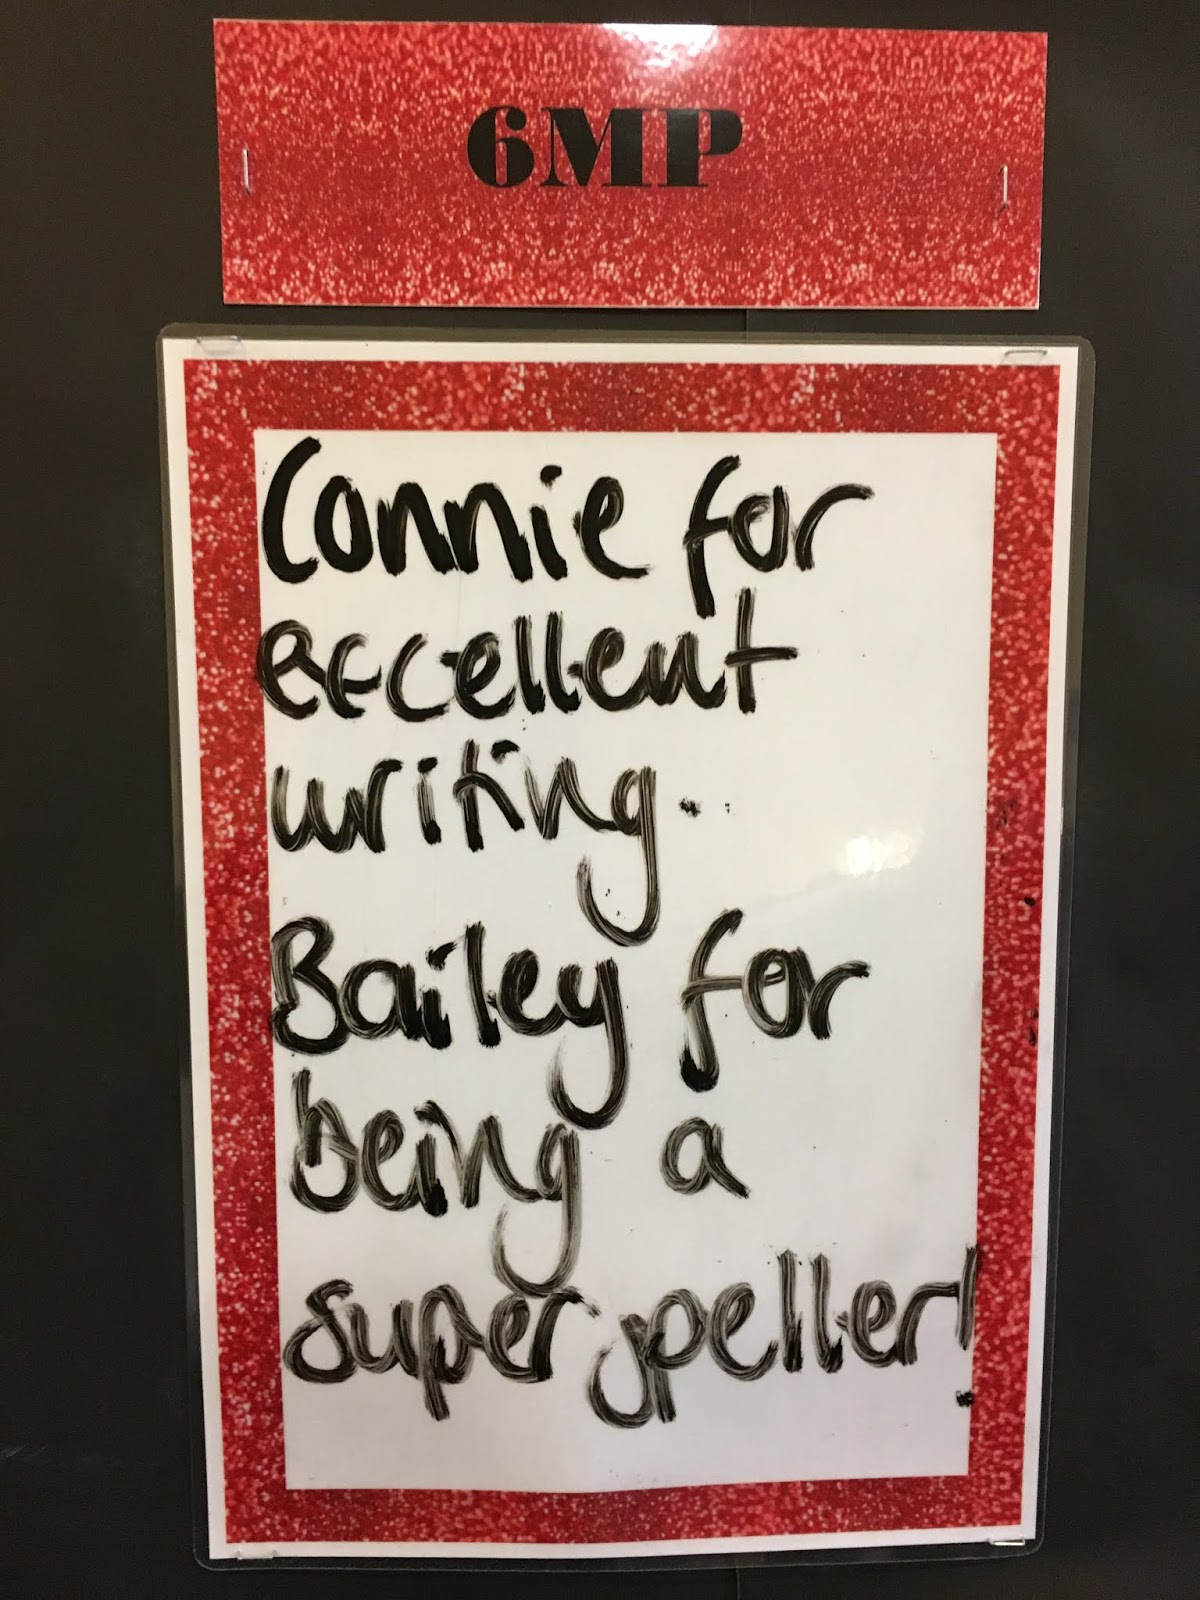 6MP
Connie for
excellent
writing.
Bailey for
being a
super speller!